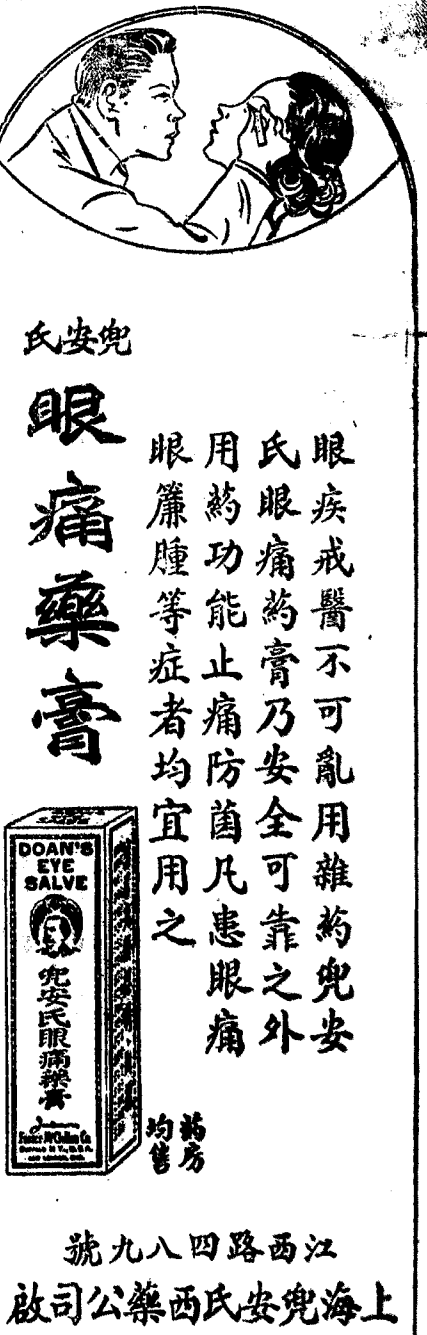 兜安氏
眼痛藥膏
眼疾戒醫不可亂用雜葯兜安
氏眼痛葯膏乃安全可靠之外
用葯功能止痛防菌凡患眼痛
眼簾腫等症者均宜用之
DOAN'S
EYE
SALVE
兜安氏眼痛藥膏
Foster McClellan Co.
BUFFALO N.Y., U.S.A.
葯房
均售
江西路四八九號
上海兜安氏西藥公司啟